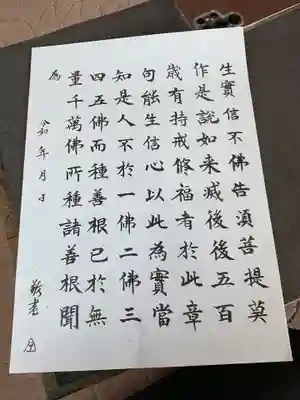 生實信不佛告須菩提莫
作是説如来滅後後五百
歳有持戒修福者於此章
句能生信心以此為實當
知是人不於一佛二佛三
四五佛而種善根已於無
量千萬佛所種諸善根聞
為
令和 年 月 日
敬書